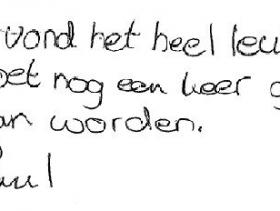 vond het heel leu
oet nog een keer g
an worden.